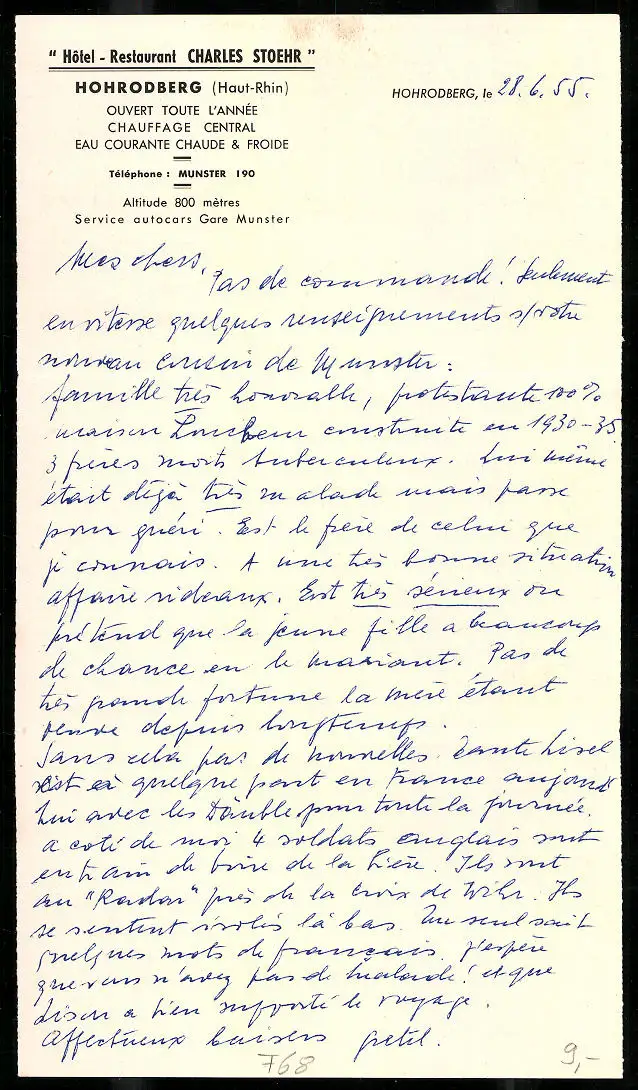 " Hôtel - Restaurant CHARLES STOEHR "
HOHRODBERG (Haut-Rhin)
HOHRODBERG, le 28.6.55.
OUVERT TOUTE L'ANNÉE
CHAUFFAGE CENTRAL
EAU COURANTE CHAUDE & FROIDE
Téléphone : MUNSTER 190
Altitude 800 mètres
Service autocars Gare Munster
Mes chers,
Pas de commande! Seulement
en vitesse quelques renseignements s/votre
nouveau cousin de Munster :
famille très honorable, protestante 100%
maison construite en 1930-35.
3 frères morts tuberculeux. Lui même
était déjà très malade mais passe
pour guéri. Est le frère de celui que
je connais. A une très bonne situation
affaire rideaux. Est très sérieux on
prétend que la jeune fille a beaucoup
de chance en le mariant. Pas de
très grande fortune la mère étant
veuve depuis longtemps.
Sans cela pas de nouvelles. Tante Lisel
est quelque part en France aujourd
hui avec les pour toute la journée.
a coté de moi 4 soldats anglais sont
entrain de boire de la bière. Ils sont
au "Radar" près de la croix de Wihr. Ils
se sentent isolés là bas. Un seul sait
quelques mots de français. j'espère
que vous n'avez pas de malade! et que
a bien supporté le voyage.
Affectueux baisers
768
9,-